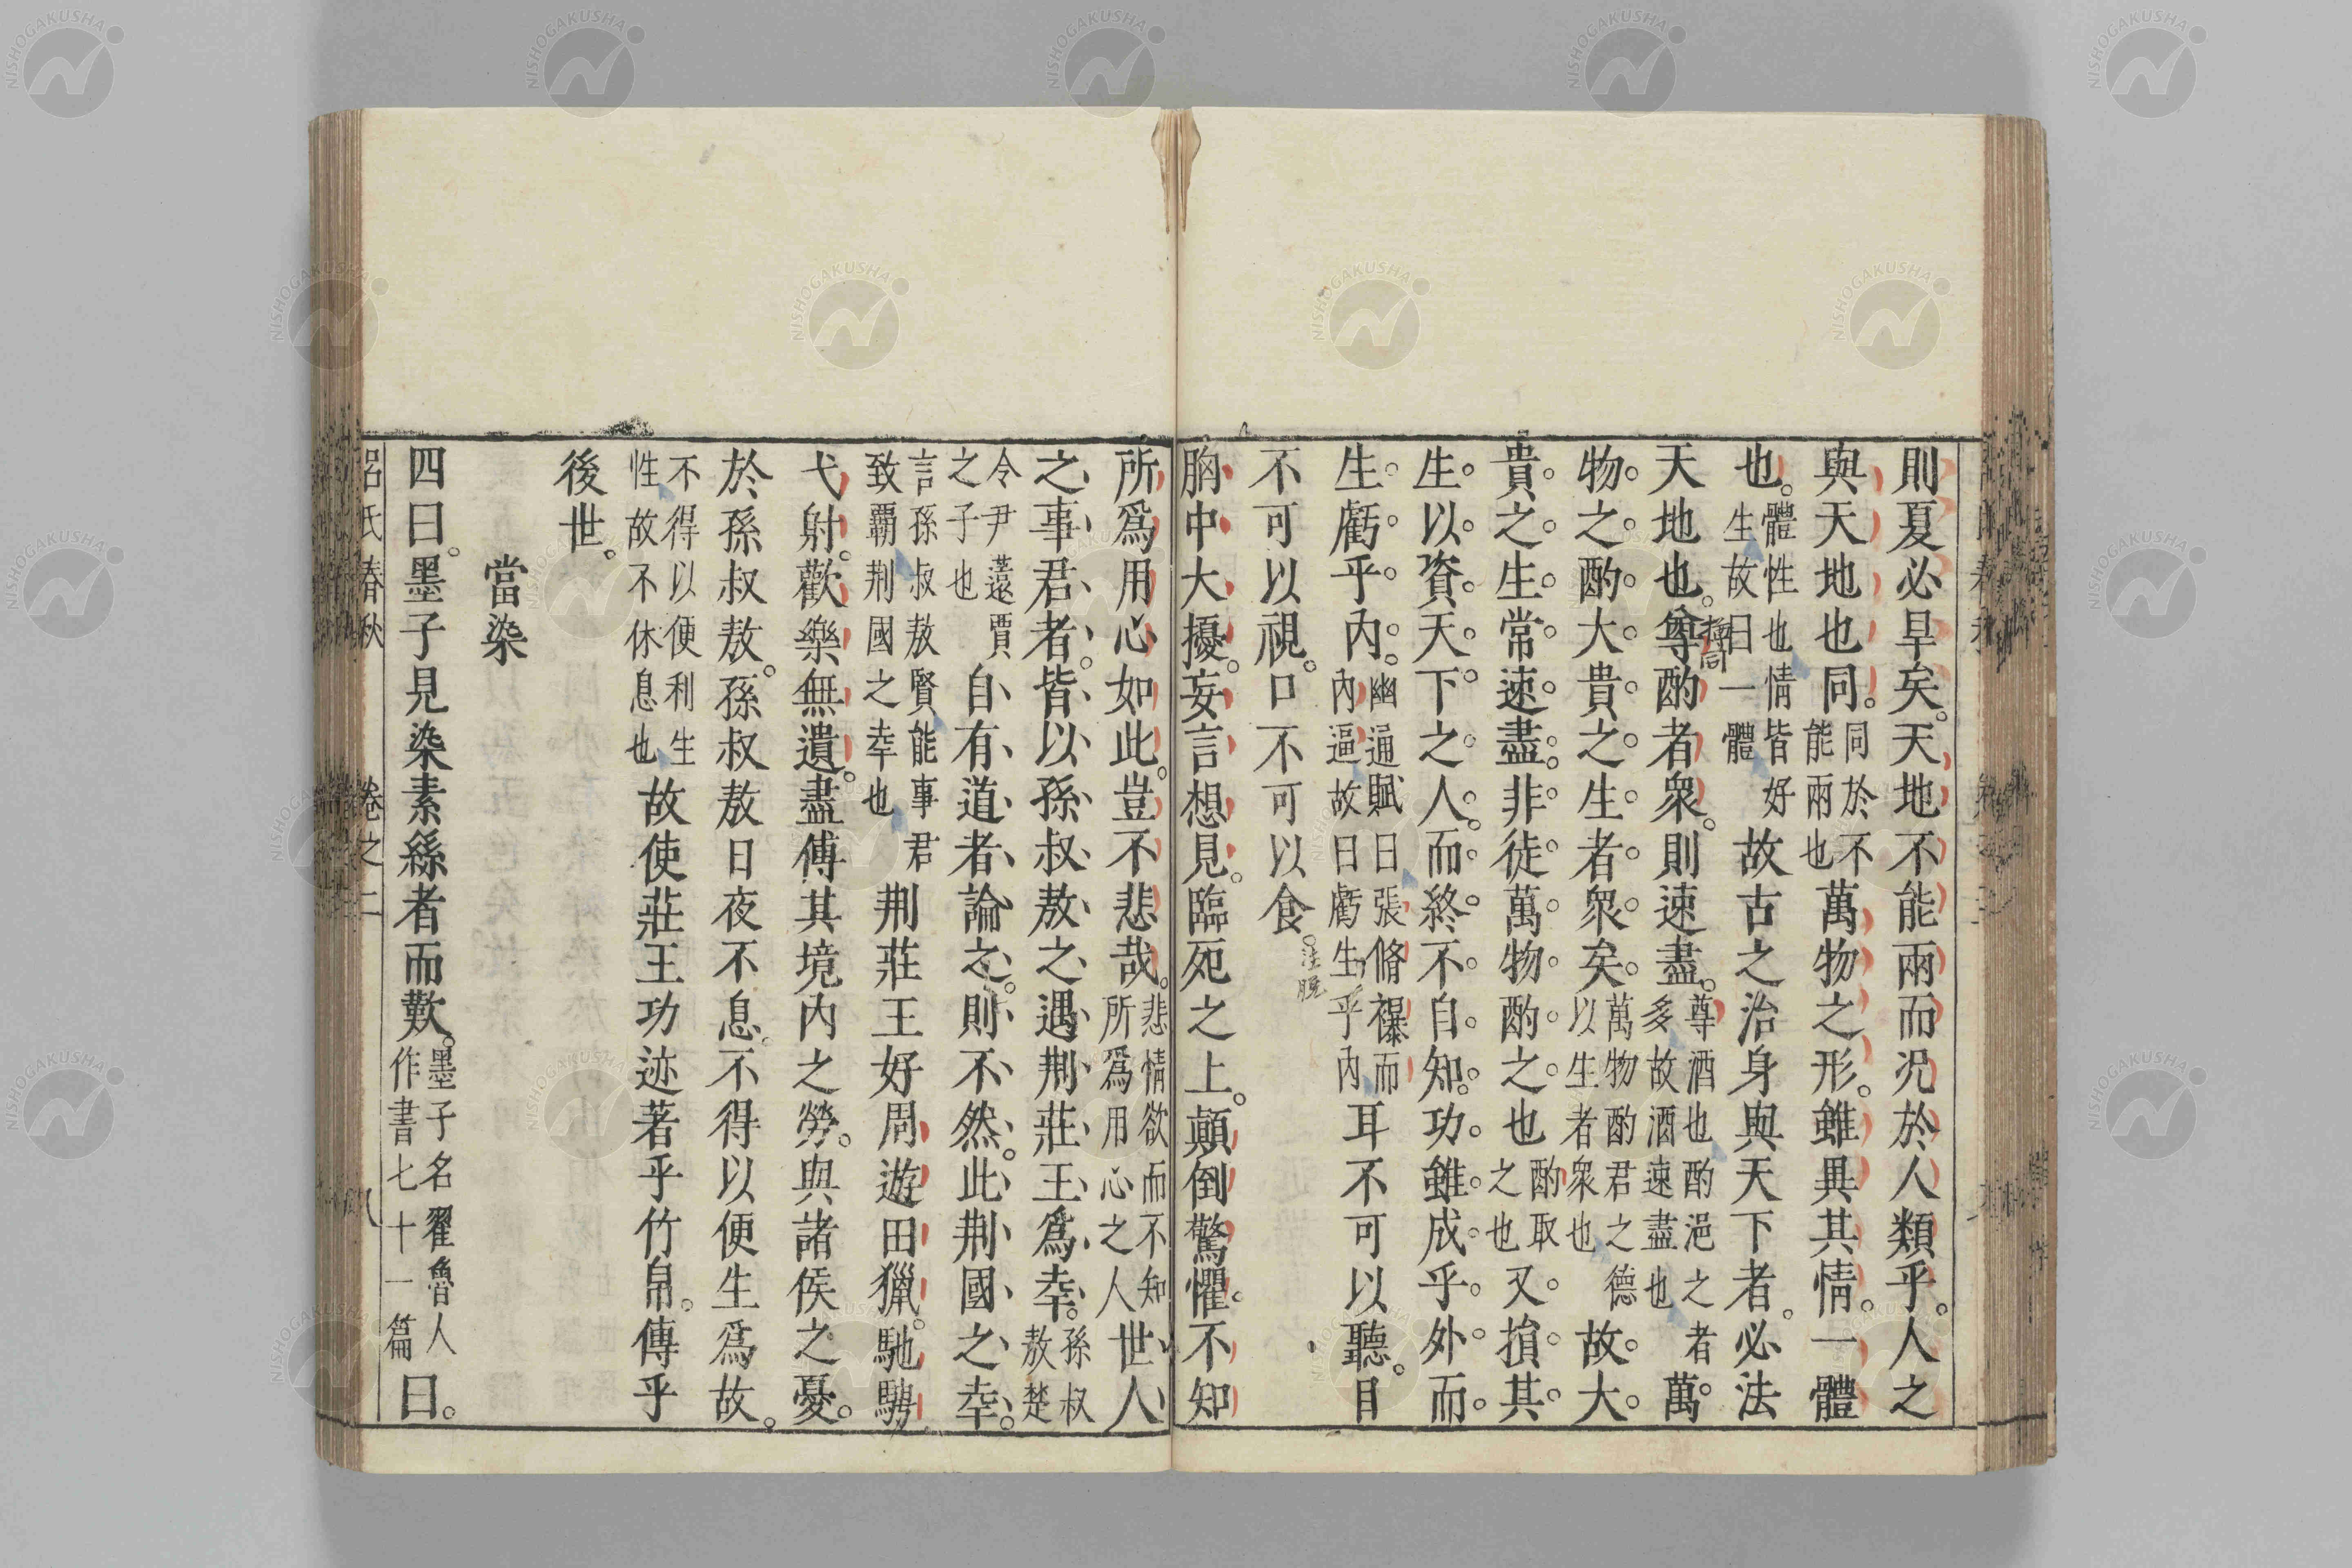 則夏必旱矣。天地不能兩而況於人類乎。人之
與天地也同。同於不能兩也萬物之形。雖異其情。一體
也。體性也情皆好生故曰一體故古之治身與天下者。必法
天地也。尊酌者衆。則速盡。尊酒也酌浥之者多故酒速盡也萬
樽同
物之酌大貴之生者衆矣。萬物酌君之德以生者衆也故大
貴之生常速盡。非徒萬物酌之也酌取之也又損其
生以資天下之人。而終不自知。功雖成乎外而
生虧乎內。幽通賦曰張脩襮而內逼故曰虧生乎內耳不可以聽。目
不可以視。口不可以食。注脫
胸中大擾。妄言想見。臨死之上。顛倒驚懼。不知
所爲用心如此。豈不悲哉。悲情欲而不知所爲用心之人世人
之事君者。皆以孫叔敖之遇荆莊王爲幸。孫叔敖楚
令尹薳賈之子也自有道者論之。則不然。此荆國之幸。
言孫叔敖賢能事君致覇荆國之幸也荆莊王好周遊田獵。馳騁
弋射。歡樂無遺。盡傅其境內之勞。與諸侯之憂。
於孫叔敖。孫叔敖日夜不息。不得以便生爲故。
不得以便利生性故不休息也故使莊王功迹著乎竹帛。傳乎
後世。
當染
四曰。墨子見染素絲者而歎。墨子名翟魯人作書七十一篇曰。
呂氏春秋 卷之二 八